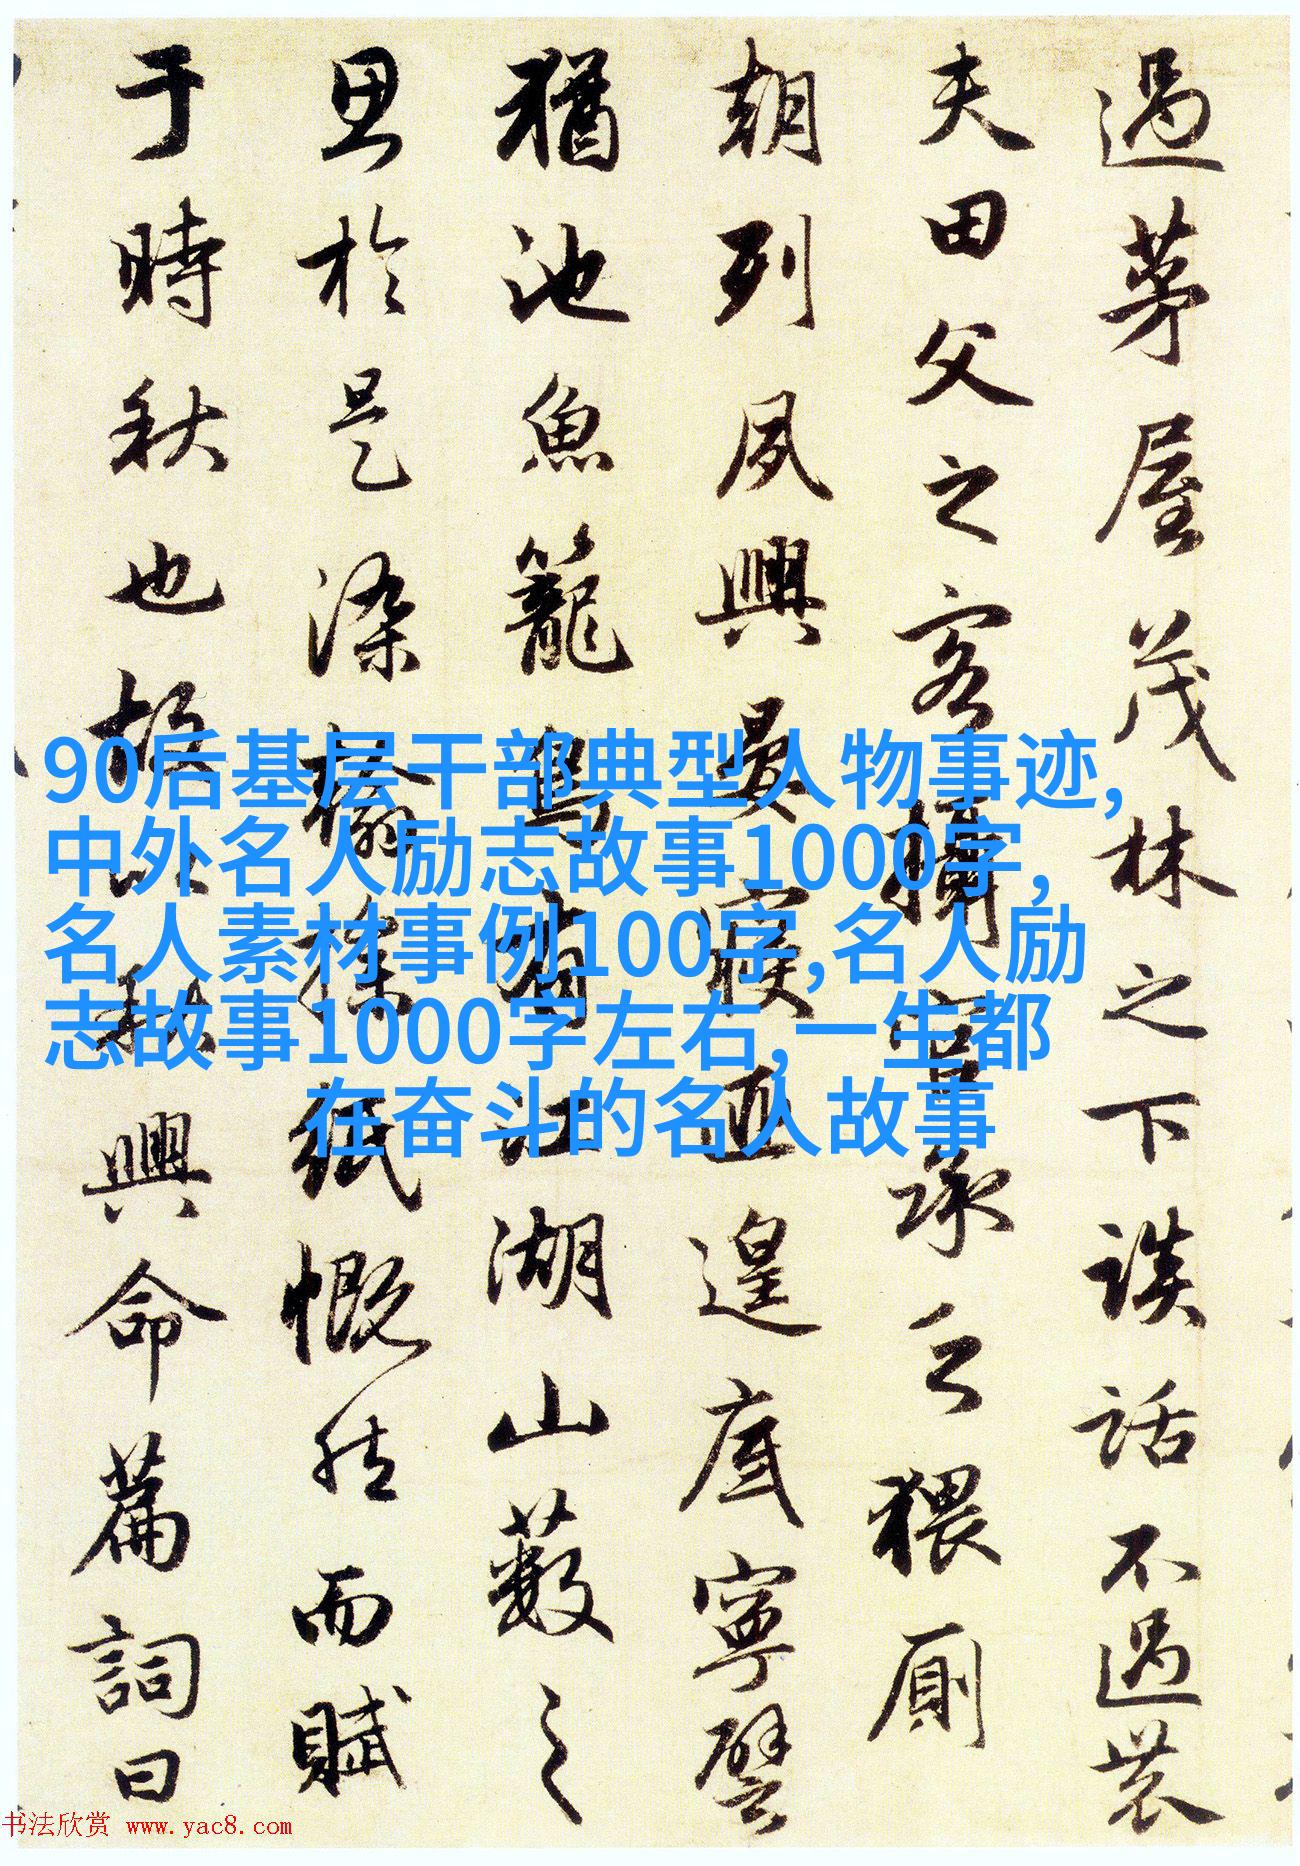 過茅屋茂林之下談話不過農
夫田父之客攝官承乏猥廁
朝列夙興晏寢匪遑底寧譬
猶池魚籠鳥有江湖山藪之
思於是染翰操紙慨然而賦
于時秋也故以秋興命篇詞曰
90后基层干部典型人物事迹,
中外名人励志故事1000字,
名人素材事例100字,名人励
志故事1000字左右,一生都
在奋斗的名人故事
书法欣赏 www.yac8.com